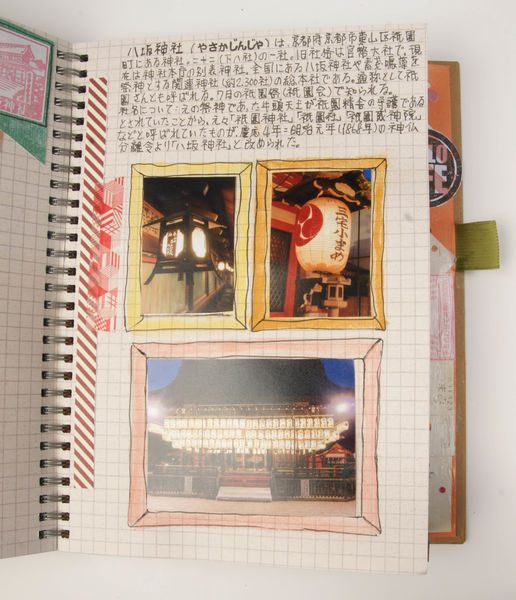 八坂神社（やさかじんじゃ）は、京都府京都市東山区祇園
町にある神社。二十二社（下八社）の一社。旧社格は官幣大社で、現
在は神社本庁の別表神社。全国にある八坂神社や素戔嗚尊を
祭神とする関連神社（約2,300社）の総本社である。通称として祇
園さんとも呼ばれる。7月の祇園祭（祇園会）で知られる。
社名について：元の祭神であった牛頭天王が祇園精舎の守護である
とされていたことから、元々「祇園神社」「祇園社」「祇園感神院」
などと呼ばれていたものが、慶応4年＝明治元年（1868年）の神仏
分離令より「八坂神社」と改められた。
三宅小まめ